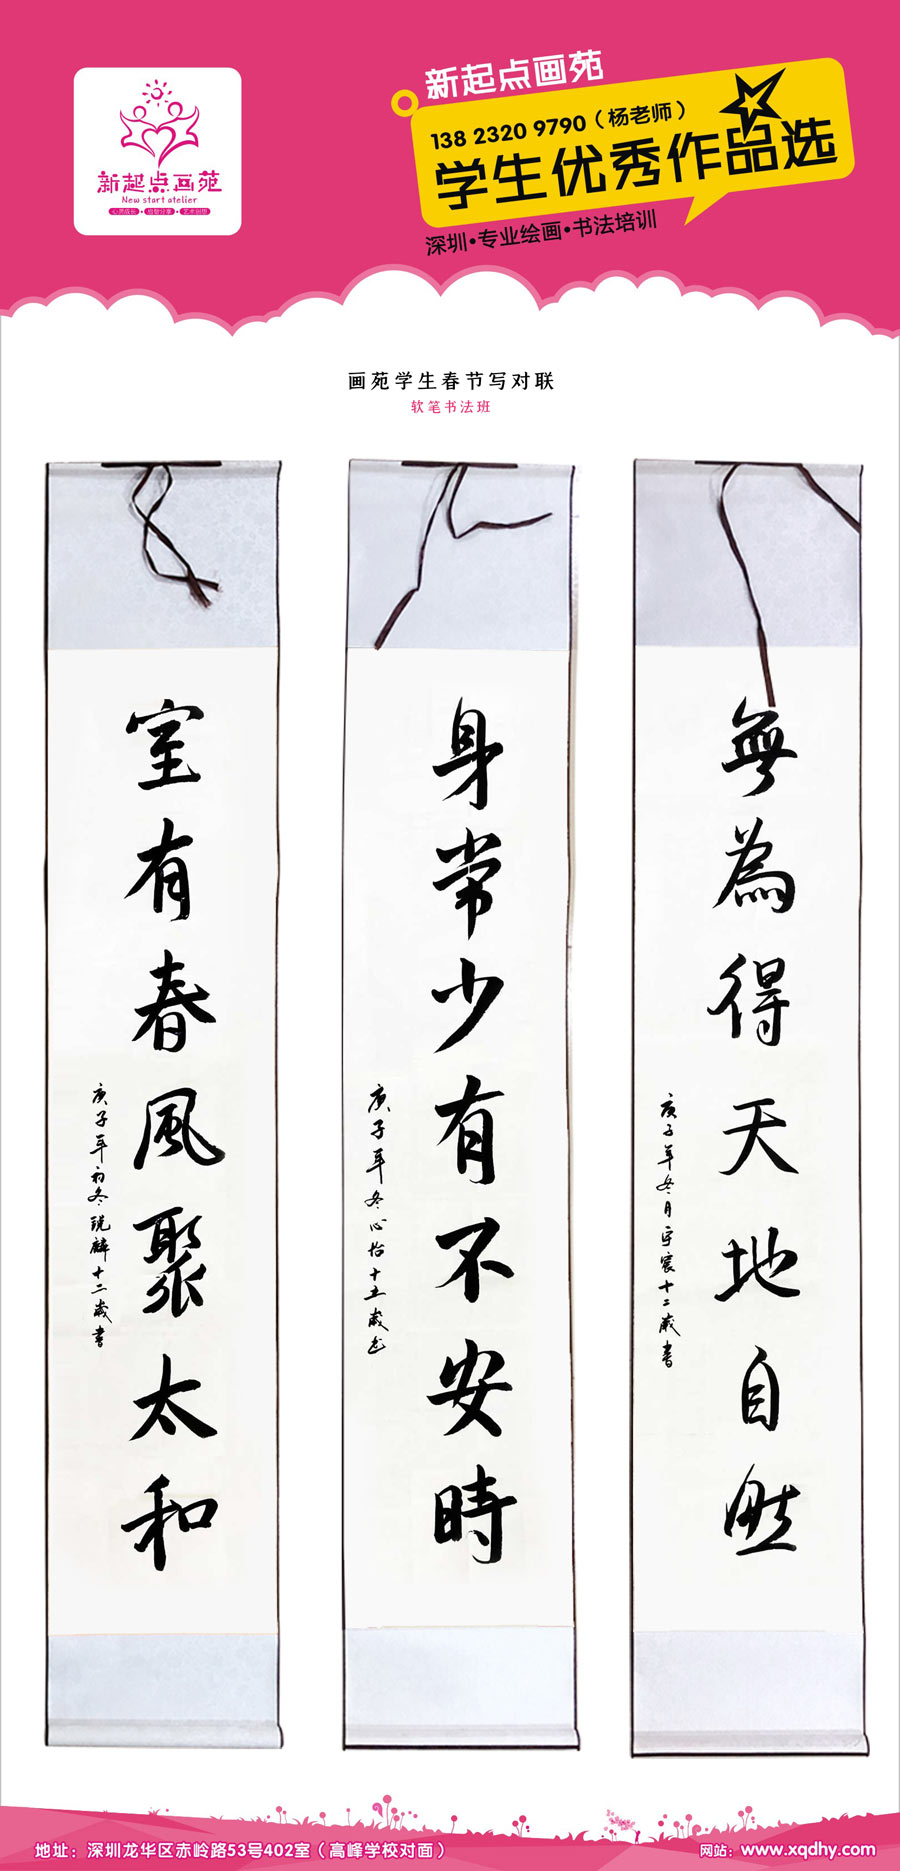 新起点画苑
New start atelier
新起点画苑
138 2320 9790（杨老师）
学生优秀作品选
深圳·专业绘画·书法培训
画苑学生春节写对联
软笔书法班
室有春風聚太和
庚子年初冬 锐麟十二歲書
身常少有不安時
庚子年冬心怡十五歲書
無為得天地自然
庚子年冬月宇宸十二歲書
地址：深圳龙华区赤岭路53号402室（高峰学校对面）
网站：www.xqdhy.com